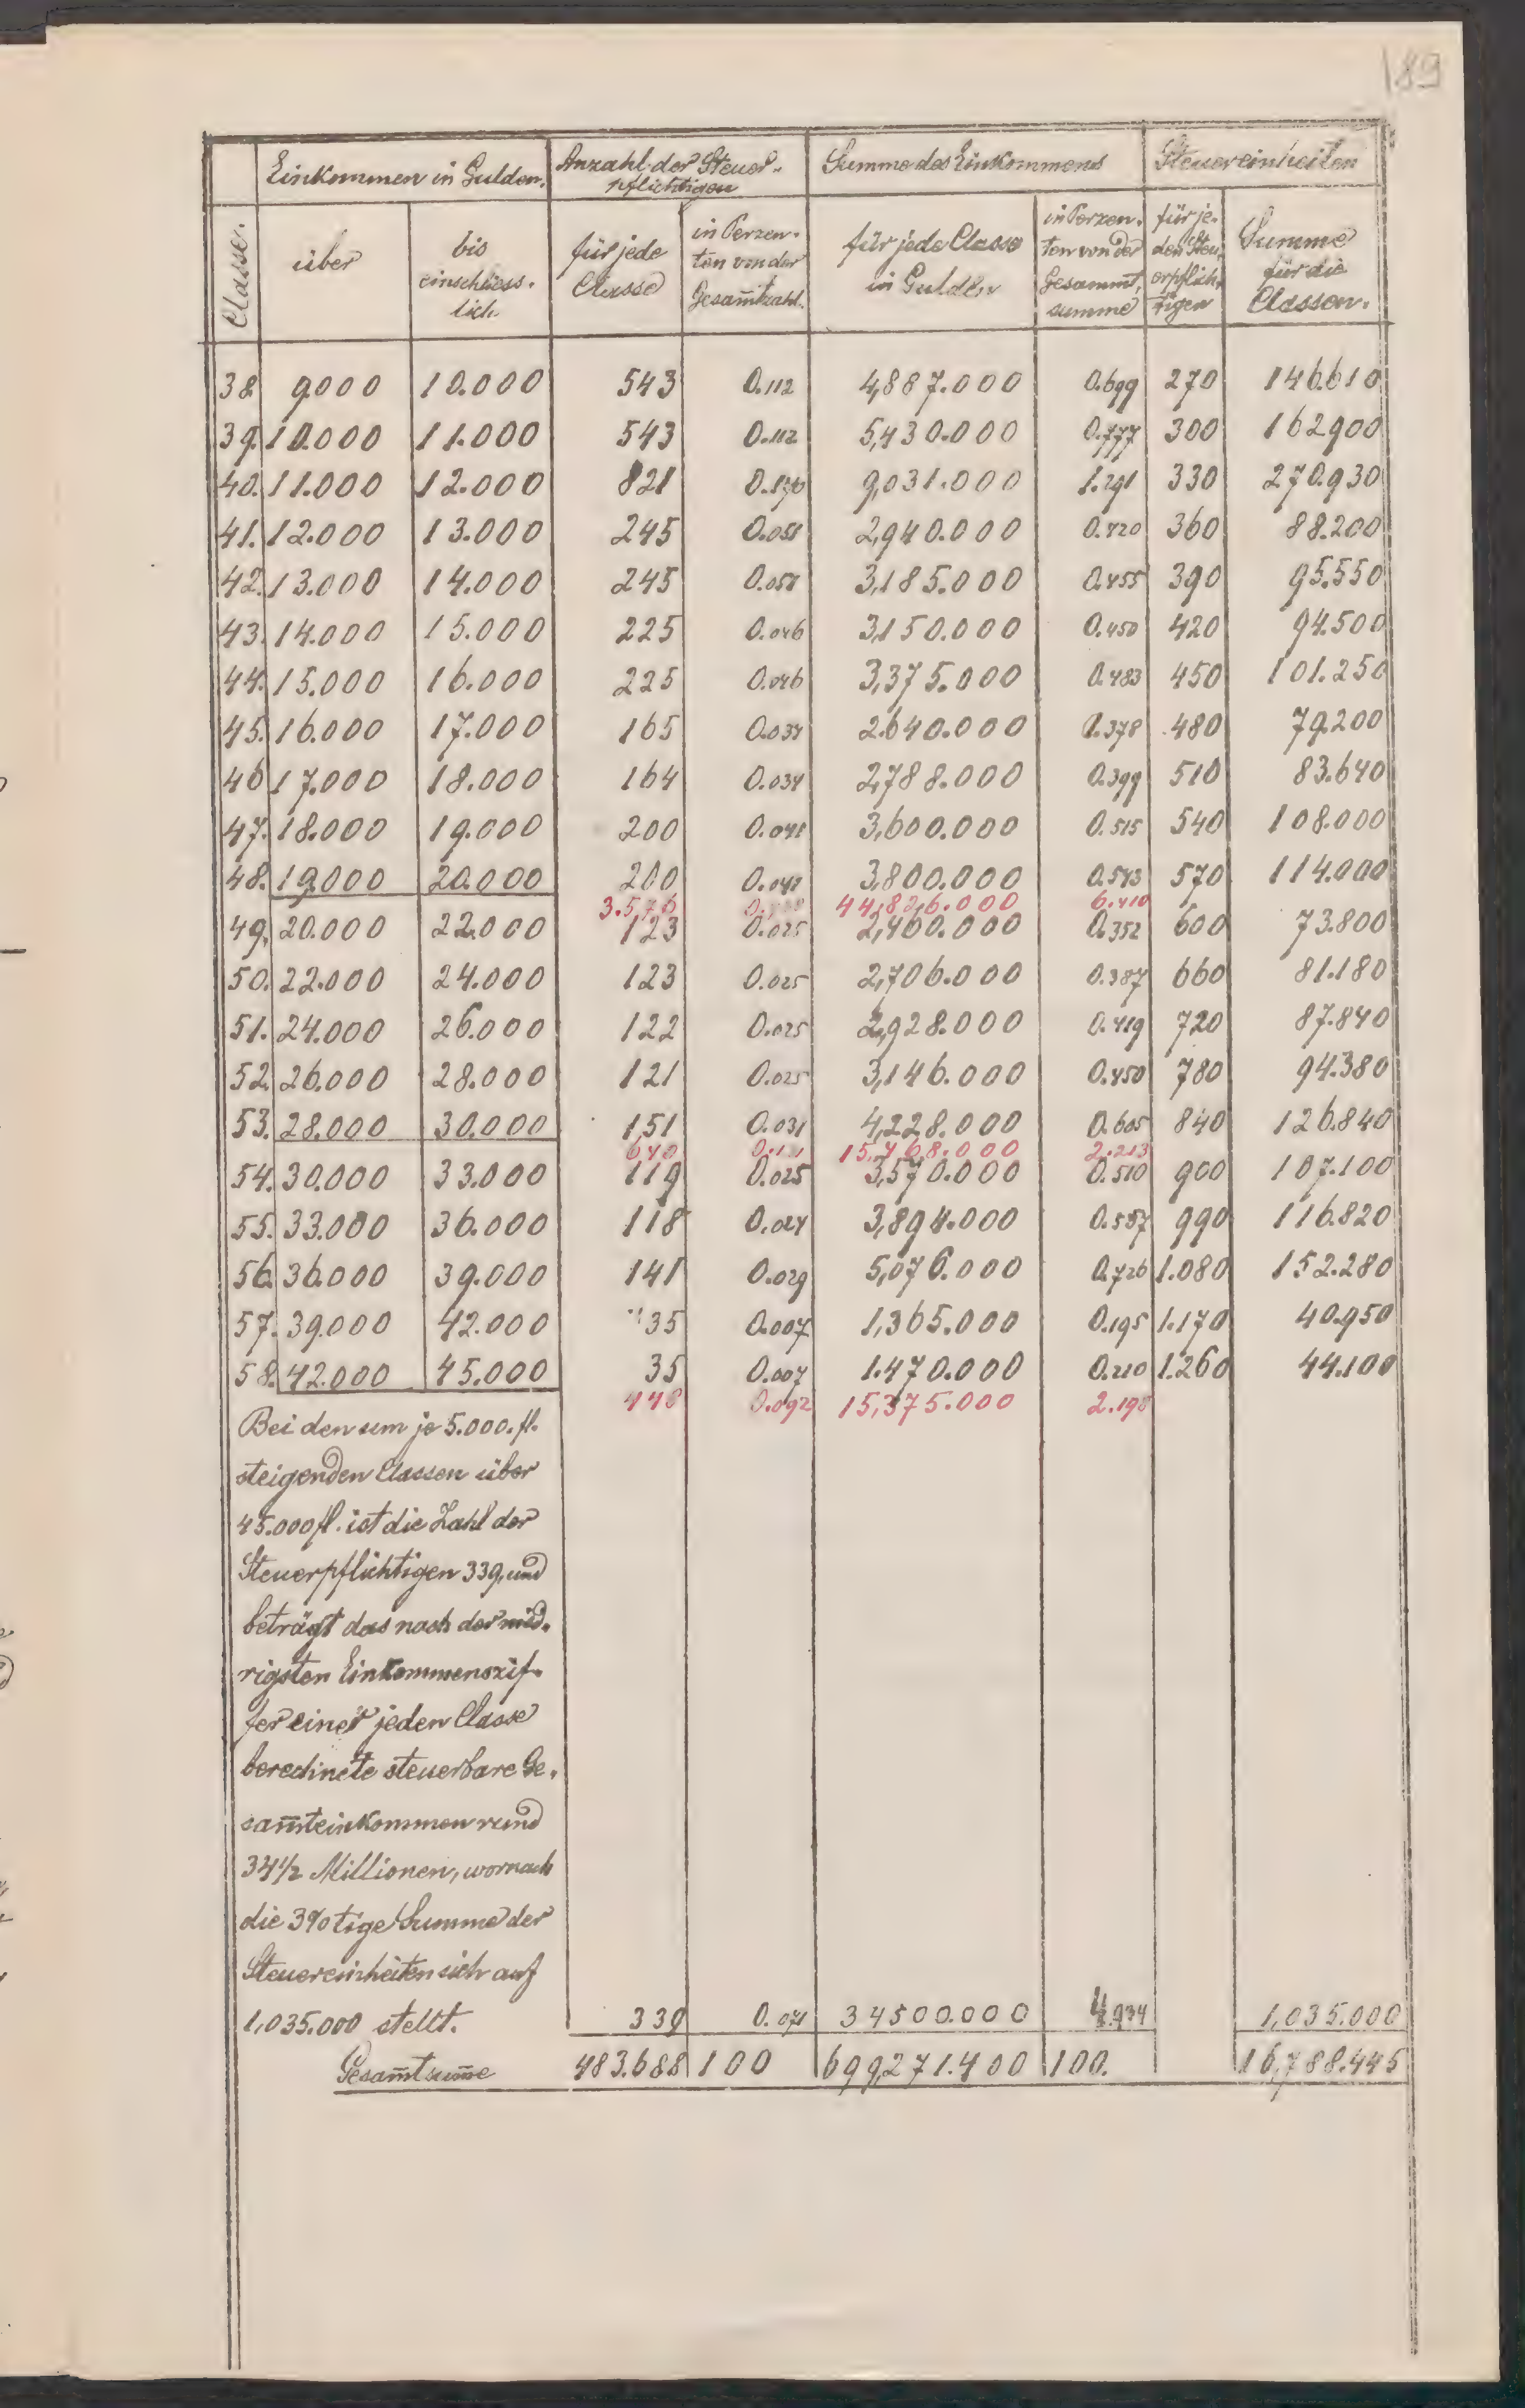 189
Einkommen in Gulden. Anzahl der Steuer- Summe des Einkommens Steuereinheiten
pflichtigen
Classe. über bis einschliess. lich für jede Classe in Perzen. ten von der Gesam̄tzahl. für jede Classe in Gulden in Perzen. ten von der Gesammt, summe für je. den Steu, erpflich, tigen Summe für die Classen.
38 9000 10.000 543 0.112 4,887.000 0.699 270 146.610
39. 10.000 11.000 543 0.112 5,430.000 0.777 300 162900
40. 11.000 12.000 821 0.170 9,031.000 1.291 330 270.930
41. 12.000 13.000 245 0.051 2,940.000 0.420 360 88.200
42. 13.000 14.000 245 0.051 3,185.000 0.455 390 95.550
43. 14.000 15.000 225 0.046 3,150.000 0.450 420 94.500
44. 15.000 16.000 225 0.046 3,375.000 0.483 450 101.250
45. 16.000 17.000 165 0.034 2.640.000 0.378 480 79.200
46 17.000 18.000 164 0.034 2,788.000 0.399 510 83.640
47. 18.000 19.000 200 0.041 3,600.000 0.515 540 108.000
48. 19.000 20.000 200 0.041 3,800.000 0.543 570 114.000
3.576 44,826.000 6.410
49. 20.000 22.000 123 0.025 2,460.000 0.352 600 73.800
50. 22.000 24.000 123 0.025 2,706.000 0.387 660 81.180
51. 24.000 26.000 122 0.025 2,928.000 0.419 720 87.840
52. 26.000 28.000 121 0.025 3,146.000 0.450 780 94.380
53. 28.000 30.000 151 0.031 4,228.000 0.605 840 126.840
640 0.131 15,468.000 2.213
54. 30.000 33.000 119 0.025 3,570.000 0.510 900 107.100
55. 33.000 36.000 118 0.024 3,894.000 0.557 990 116.820
56. 36.000 39.000 141 0.029 5,076.000 0.726 1.080 152.280
57. 39.000 42.000 35 0.007 1,365.000 0.195 1.170 40.950
58. 42.000 45.000 35 0.007 1.470.000 0.210 1.260 44.100
448 0.092 15,375.000 2.198
Bei den um je 5.000. fl.
steigenden Classen über
45.000 fl. ist die Zahl der
Steuerpflichtigen 339, und
beträgt das nach der nied.
rigsten Einkommenszif-
fer einer jeden Classe
berechnete steuerbare Ge,
sam̄teinkommen rund
34½ Millionen, wornach
die 3%tige Summe der
Steuereinheiten sich auf
1,035.000 stellt. 339 0.071 34500.000 4.934 1,035.000
Gesam̄tsum̄e 483.688 100 699,271.400 100. 16,788.445